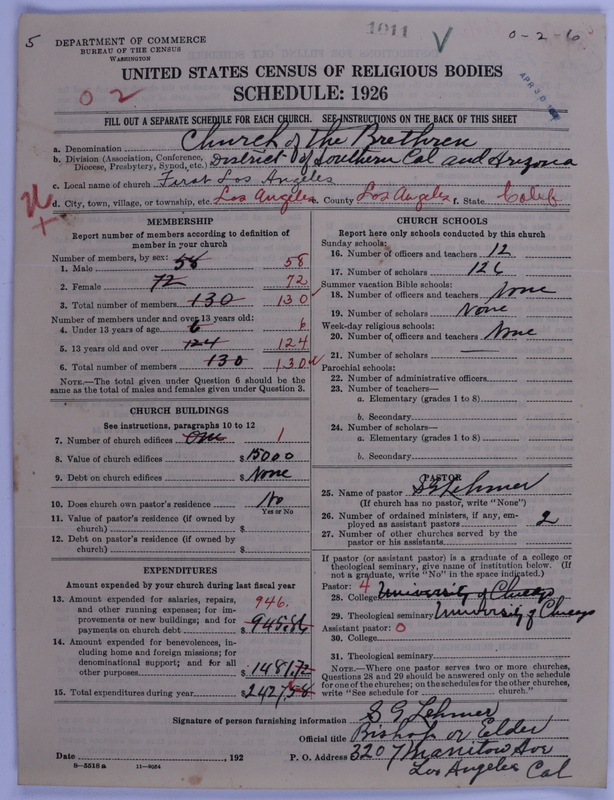 5
DEPARTMENT OF COMMERCE
BUREAU OF THE CENSUS
WASHINGTON
1011
0-2-6
UNITED STATES CENSUS OF RELIGIOUS BODIES
SCHEDULE: 1926
02
APR 30
FILL OUT A SEPARATE SCHEDULE FOR EACH CHURCH. SEE INSTRUCTIONS ON THE BACK OF THIS SHEET
a. Denomination Church of the Brethren
b. Division (Association, Conference, Diocese, Presbytery, Synod, etc.) District of Southern Cal and Arizona
c. Local name of church First Los Angeles
d. City, town, village, or township, etc. Los Angeles e. County Los Angeles f. State Calif
MEMBERSHIP
Report number of members according to definition of
member in your church
Number of members, by sex:
1. Male 58 58
2. Female 72 72
3. Total number of members 130 130
Number of members under and over 13 years old:
4. Under 13 years of age 6 6
5. 13 years old and over 124 124
6. Total number of members 130 130
NOTE.—The total given under Question 6 should be
same as the total of males and females given under Question 3.
CHURCH BUILDINGS
See instructions, paragraphs 10 to 12
7. Number of church edifices One 1
8. Value of church edifices $15000
9. Debt on church edifices $None
10. Does church own pastor's residence No
Yes or No
11. Value of pastor's residence (if owned by
church) $
12. Debt on pastor's residence (if owned by
church) $
EXPENDITURES
Amount expended by your church during last fiscal year
13. Amount expended for salaries, repairs,
and other running expenses; for im-
provements or new buildings; and for
payments on church debt 946. $945.86
14. Amount expended for benevolences, in-
cluding home and foreign missions; for
denominational support; and for all
other purposes $1481.72
15. Total expenditures during year $
CHURCH SCHOOLS
Report here only schools conducted by this church
Sunday schools:
16. Number of officers and teachers 12
17. Number of scholars 126
Summer vacation Bible schools:
18. Number of officers and teachers None
19. Number of scholars None
Week-day religious schools:
20. Number of officers and teachers None
21. Number of scholars —
Parochial schools:
22. Number of administrative officers
23. Number of teachers—
a. Elementary (grades 1 to 8)
b. Secondary
24. Number of scholars—
a. Elementary (grades 1 to 8)
b. Secondary
PASTOR
25. Name of pastor S G Lehmer
(If church has no pastor, write "None")
26. Number of ordained ministers, if any, em-
ployed as assistant pastors 2
27. Number of other churches served by the
pastor or his assistants
If pastor (or assistant pastor) is a graduate of a college or
theological seminary, give name of institution below. (If
not a graduate, write "No" in the space indicated.)
Pastor: 4
28. College University of Chicago
29. Theological seminary University of Chicago
Assistant pastor: 0
30. College
31. Theological seminary
NOTE.—Where one pastor serves two or more churches,
Questions 28 and 29 should be answered only on the schedule
for one of the churches; on the schedules for the other churches,
write "See schedule for church."
Signature of person furnishing information S G Lehmer
Official title Bishop or Elder
Date , 192 P. O. Address 3207 Manitow Ave
Los Angeles Cal
8—5518 a 11—9064